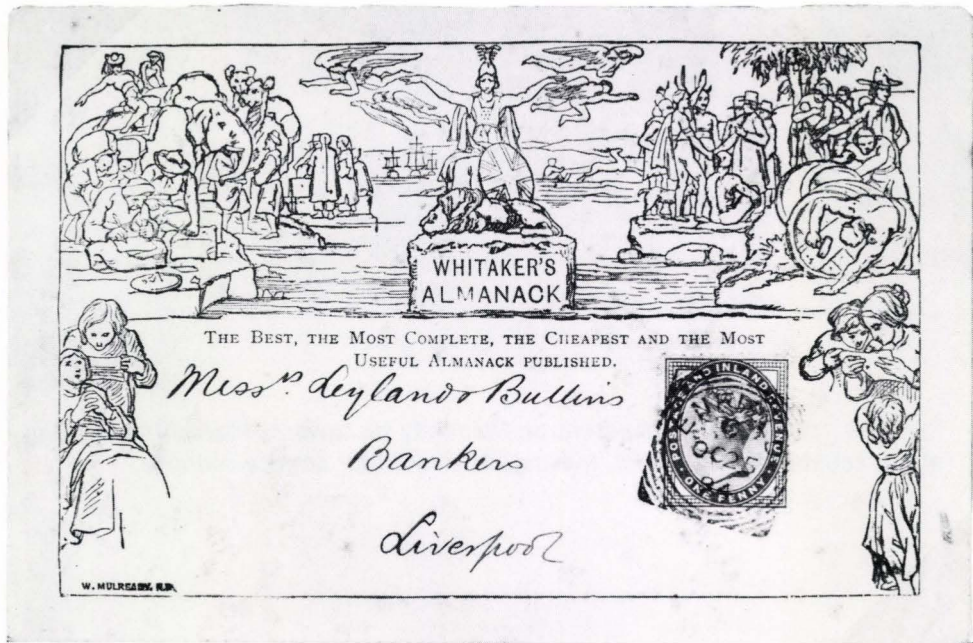 WHITAKER'S
ALMANACK
THE BEST, THE MOST COMPLETE, THE CHEAPEST AND THE MOST
USEFUL ALMANACK PUBLISHED.
Messrs Leyland & Bullins
Bankers
Liverpool
POSTAGE AND INLAND REVENUE
ONE PENNY
OC 26
W. MULREADY, R.A.